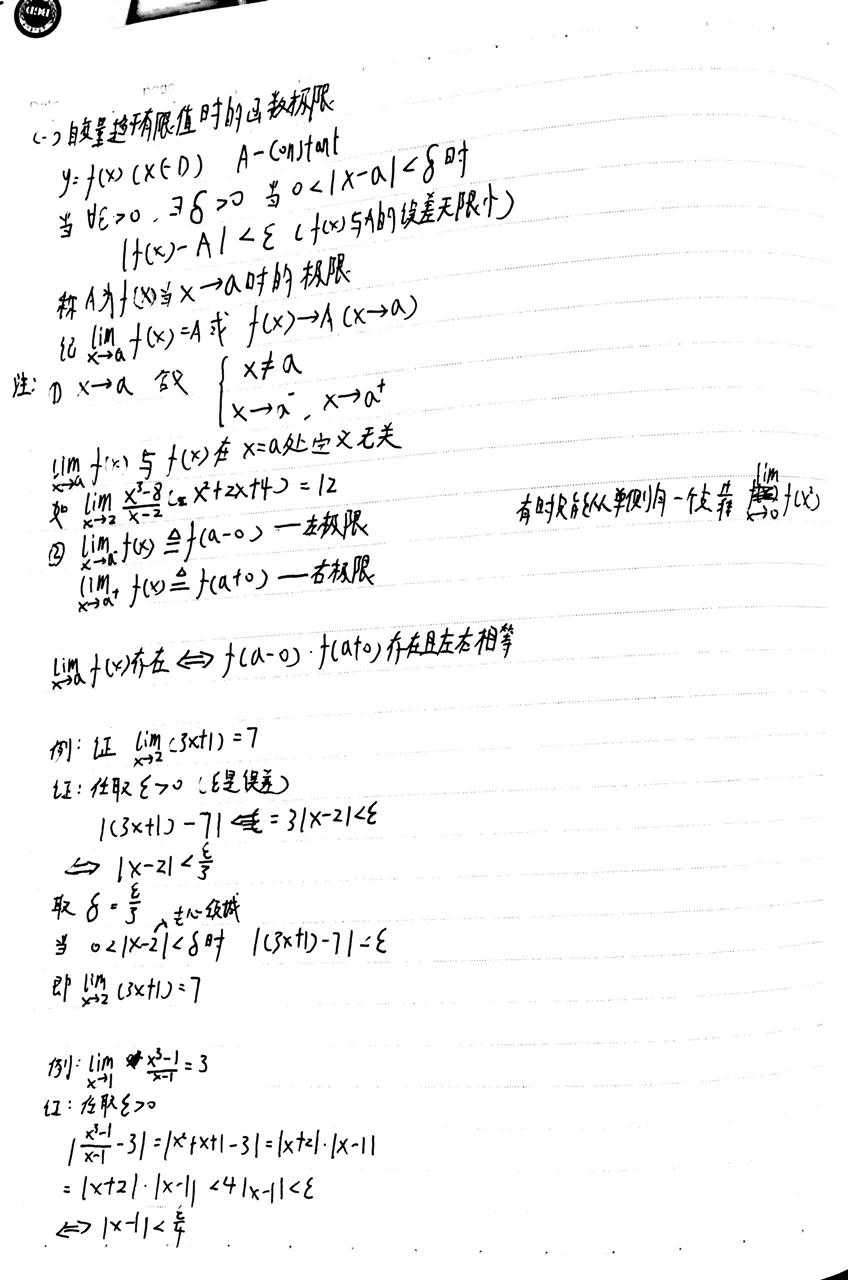 (一) 自变量趋于有限值时的函数极限
y=f(x) (x∈D) A-Constant
当 ∀ε>0, ∃δ>0 当 0<|x-a|<δ时
|f(x)-A|<ε (f(x)与A的误差无限小)
称A为f(x)当x→a时的极限
记 lim_{x→a} f(x)=A或 f(x)→A (x→a)
注: ① x→a 含义 { x≠a
x→a⁻, x→a⁺
lim_{x→a} f(x) 与 f(x)在 x=a处定义无关
如 lim_{x→2} (x³-8)/(x-2) (= x²+2x+4) = 12
有时只能从单侧向一个点靠 lim_{x→0} f(x)
② lim_{x→a⁻} f(x) ≜ f(a-0) —左极限
lim_{x→a⁺} f(x) ≜ f(a+0) —右极限
lim_{x→a} f(x)存在 ⇔ f(a-0)·f(a+0)存在且左右相等
例: 证 lim_{x→2} (3x+1)=7
证: 任取ε>0 (ε是误差)
|(3x+1)-7| = 3|x-2|<ε
⇔ |x-2|<ε/3
取 δ=ε/3
去心邻域
当 0<|x-2|<δ时 |(3x+1)-7|<ε
即 lim_{x→2} (3x+1)=7
例: lim_{x→1} (x³-1)/(x-1)=3
证: 任取ε>0
|(x³-1)/(x-1)-3|=|x²+x+1-3|=|x+2|·|x-1|
=|x+2|·|x-1|<4|x-1|<ε
⇔ |x-1|<ε/4